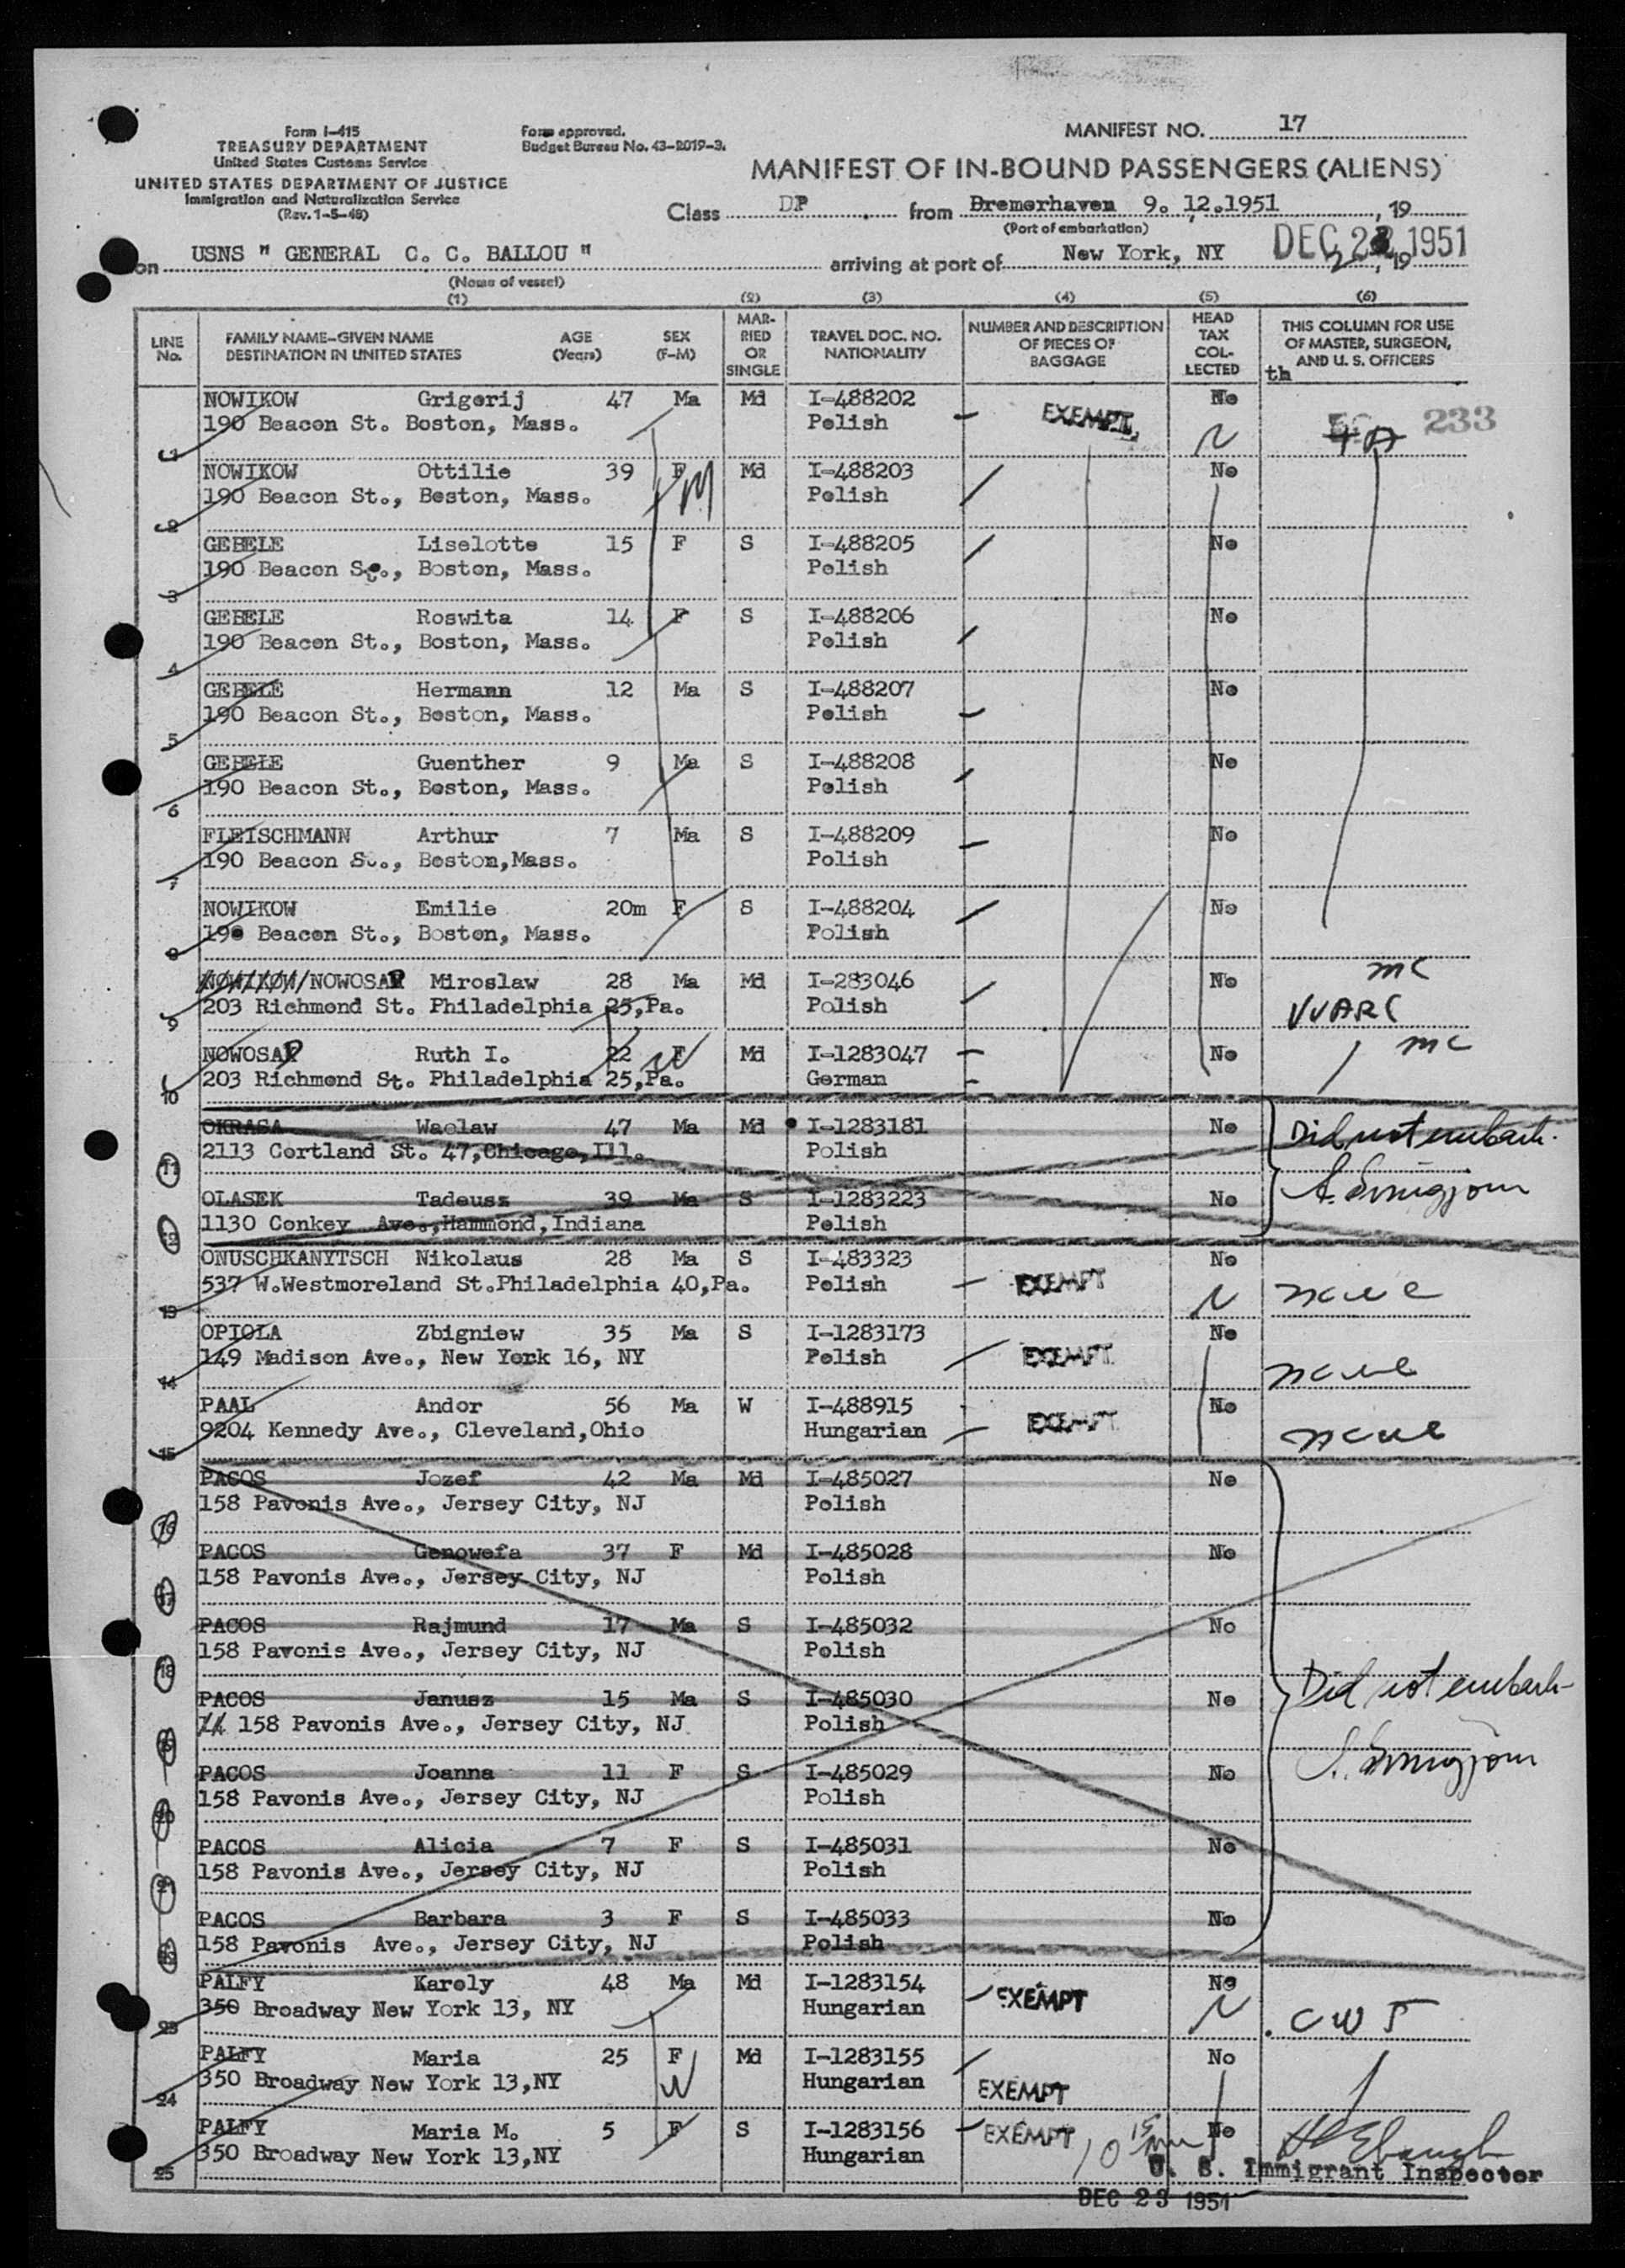 Form I-415
TREASURY DEPARTMENT
United States Customs Service
UNITED STATES DEPARTMENT OF JUSTICE
Immigration and Naturalization Service
(Rev. 1-5-48)
Form approved.
Budget Bureau No. 43-R019-3.
MANIFEST NO. 17
MANIFEST OF IN-BOUND PASSENGERS (ALIENS)
Class DP from Bremerhaven 9. 12.1951, 19
(Port of embarkation)
on USNS " GENERAL C. C. BALLOU " arriving at port of New York, NY DEC 22 1951, 19
(Name of vessel)
(1) (2) (3) (4) (5) (6)
LINE No.
FAMILY NAME-GIVEN NAME AGE SEX
DESTINATION IN UNITED STATES (Years) (F-M)
MARRIED OR SINGLE
TRAVEL DOC. NO. NATIONALITY
NUMBER AND DESCRIPTION OF PIECES OF BAGGAGE
HEAD TAX COLLECTED
THIS COLUMN FOR USE OF MASTER, SURGEON, AND U. S. OFFICERS
th
NOWIKOW Grigorij 47 Ma Md I-488202 No
190 Beacon St. Boston, Mass. Polish EXEMPT 233
1
NOWIKOW Ottilie 39 F Md I-488203 No
190 Beacon St., Boston, Mass. Polish
2
GEBELE Liselotte 15 F S I-488205 No
190 Beacon St., Boston, Mass. Polish
3
GEBELE Roswita 14 F S I-488206 No
190 Beacon St., Boston, Mass. Polish
4
GEBELE Hermann 12 Ma S I-488207 No
190 Beacon St., Boston, Mass. Polish
5
GEBELE Guenther 9 Ma S I-488208 No
190 Beacon St., Boston, Mass. Polish
6
FLEISCHMANN Arthur 7 Ma S I-488209 No
190 Beacon St., Boston,Mass. Polish
7
NOWIKOW Emilie 20m F S I-488204 No
190 Beacon St., Boston, Mass. Polish
8
NOWIKOW/NOWOSAD Miroslaw 28 Ma Md I-283046 No mc
203 Richmond St. Philadelphia 25,Pa. Polish WARC
9
NOWOSAD Ruth I. 22 F Md I-1283047 No mc
203 Richmond St. Philadelphia 25,Pa. German
10
OKRASA Waclaw 47 Ma Md I-1283181 No Did not embark.
2113 Cortland St. 47,Chicago,Ill. Polish
11
OLASEK Tadeusz 39 Ma S I-1283223 No
1130 Conkey Ave.,Hammond,Indiana Polish
12
ONUSCHKANYTSCH Nikolaus 28 Ma S I-483323 No
537 W.Westmoreland St.Philadelphia 40,Pa. Polish EXEMPT
13
OPIOLA Zbigniew 35 Ma S I-1283173 No
149 Madison Ave., New York 16, NY Polish EXEMPT
14
PAAL Andor 56 Ma W I-488915 No
9204 Kennedy Ave., Cleveland,Ohio Hungarian EXEMPT
15
PACOS Jozef 42 Ma Md I-485027 No
158 Pavonis Ave., Jersey City, NJ Polish
16
PACOS Genowefa 37 F Md I-485028 No
158 Pavonis Ave., Jersey City, NJ Polish
17
PACOS Rajmund 17 Ma S I-485032 No
158 Pavonis Ave., Jersey City, NJ Polish
18
PACOS Janusz 15 Ma S I-485030 No Did not embark
158 Pavonis Ave., Jersey City, NJ Polish
19
PACOS Joanna 11 F S I-485029 No
158 Pavonis Ave., Jersey City, NJ Polish
20
PACOS Alicia 7 F S I-485031 No
158 Pavonis Ave., Jersey City, NJ Polish
21
PACOS Barbara 3 F S I-485033 No
158 Pavonis Ave., Jersey City, NJ Polish
PALFY Karoly 48 Ma Md I-1283154 No
350 Broadway New York 13, NY Hungarian EXEMPT CWS
23
PALFY Maria 25 F Md I-1283155 No
350 Broadway New York 13,NY Hungarian EXEMPT
24
PALFY Maria M. 5 F S I-1283156 EXEMPT No
350 Broadway New York 13,NY Hungarian
25
U. S. Immigrant Inspector
DEC 23 1951